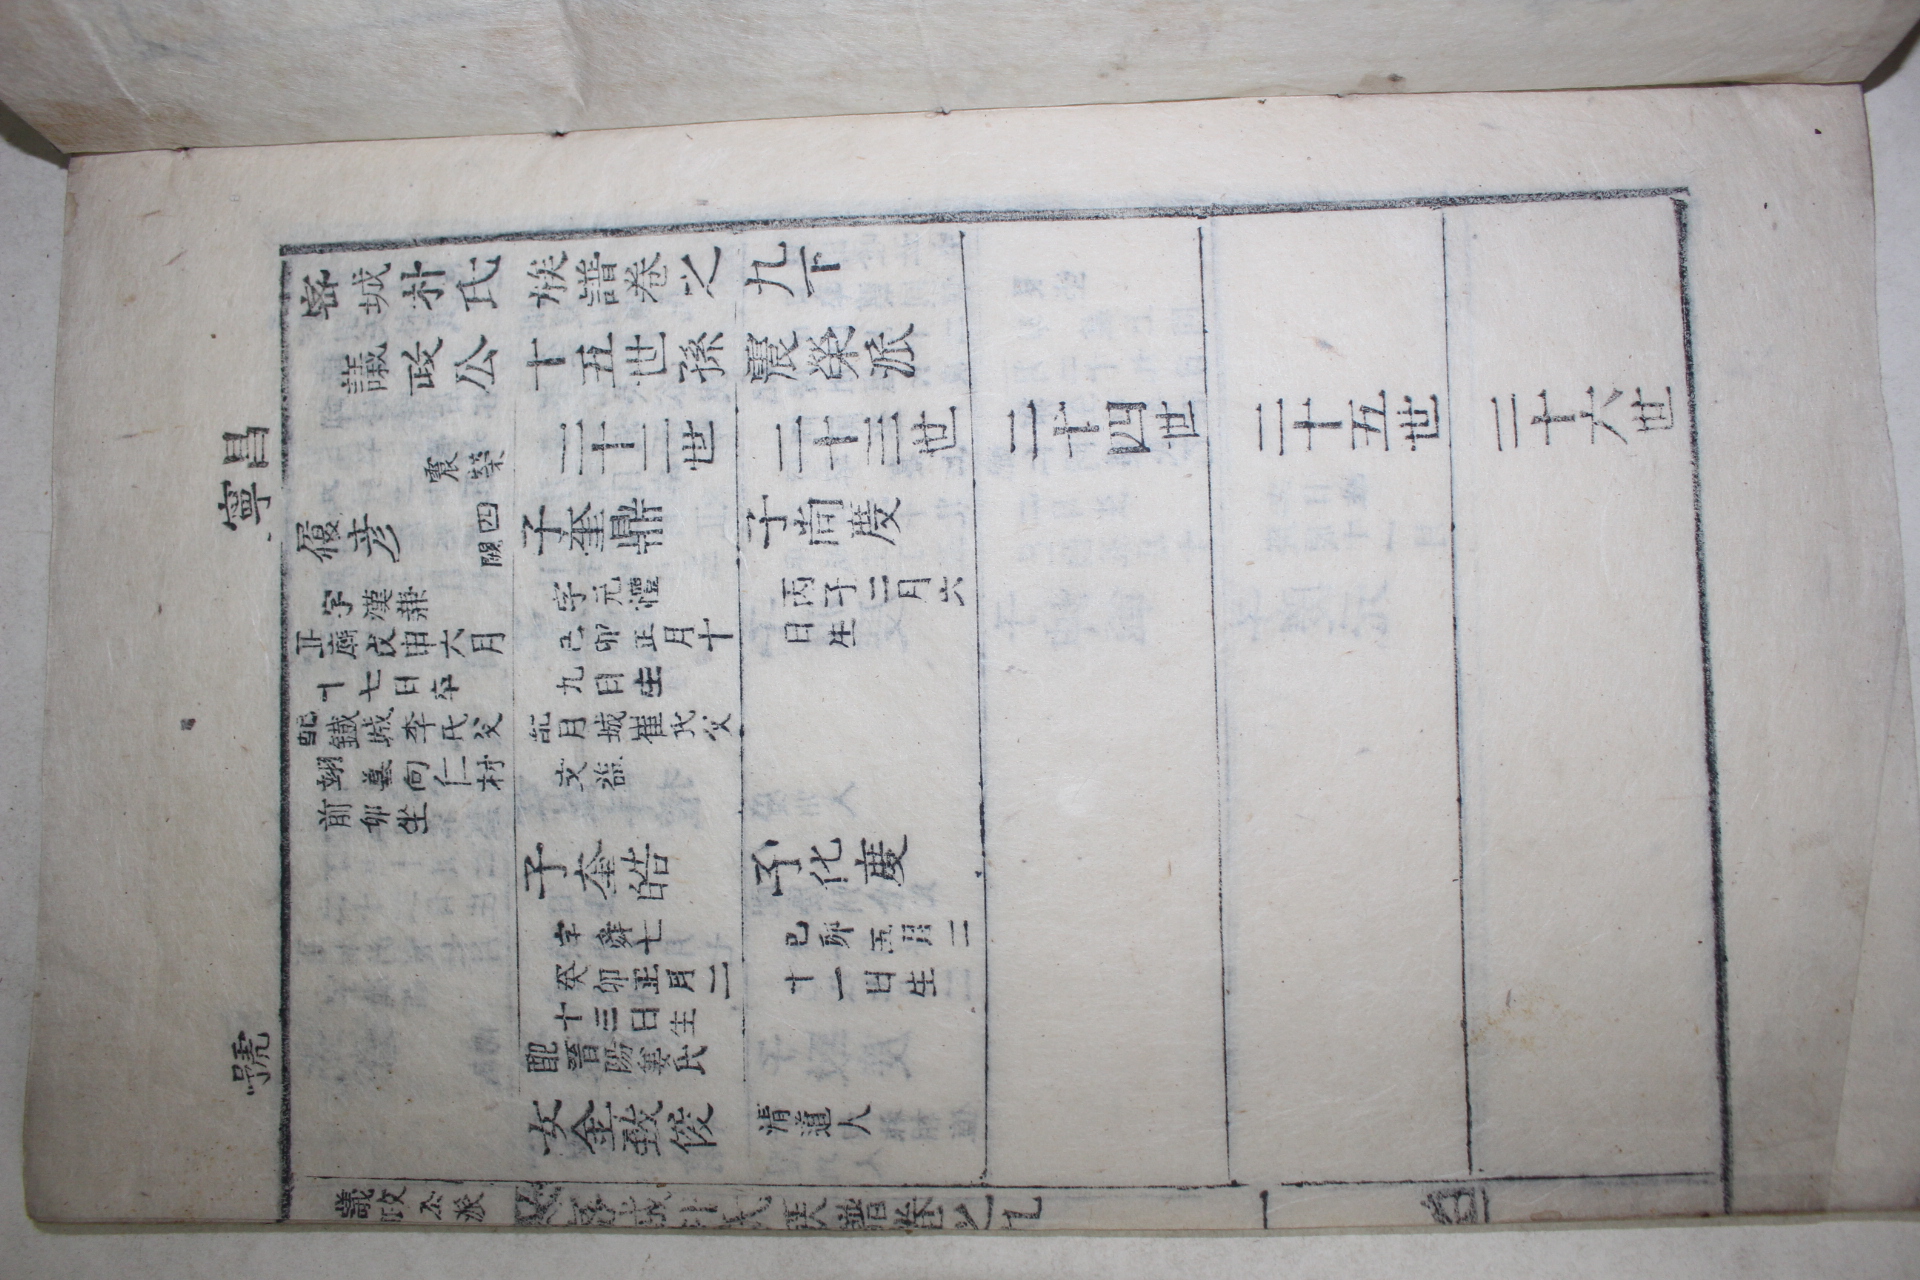 昌寧
號
密城朴氏族譜卷之九下
議政公十五世孫震榮派
震榮
二十二世
二十三世
二十四世
二十五世
二十六世
履彦
四
覞
字漢兼
正廟戊申六月
十七日卒
配鐵城李氏父
翊墓向仁村
前卯坐
子奎鼎
字元禮
己卯正月十
九日生
配月城崔氏父
文益
子尚度
丙子二月六
日生
子奎皓
字舜七
癸卯正月二
十三日生
配晋陽姜氏
子化度
己卯五月二
十一日生
女金致俊
清道人
議政公派
密城朴氏族譜卷之九
一